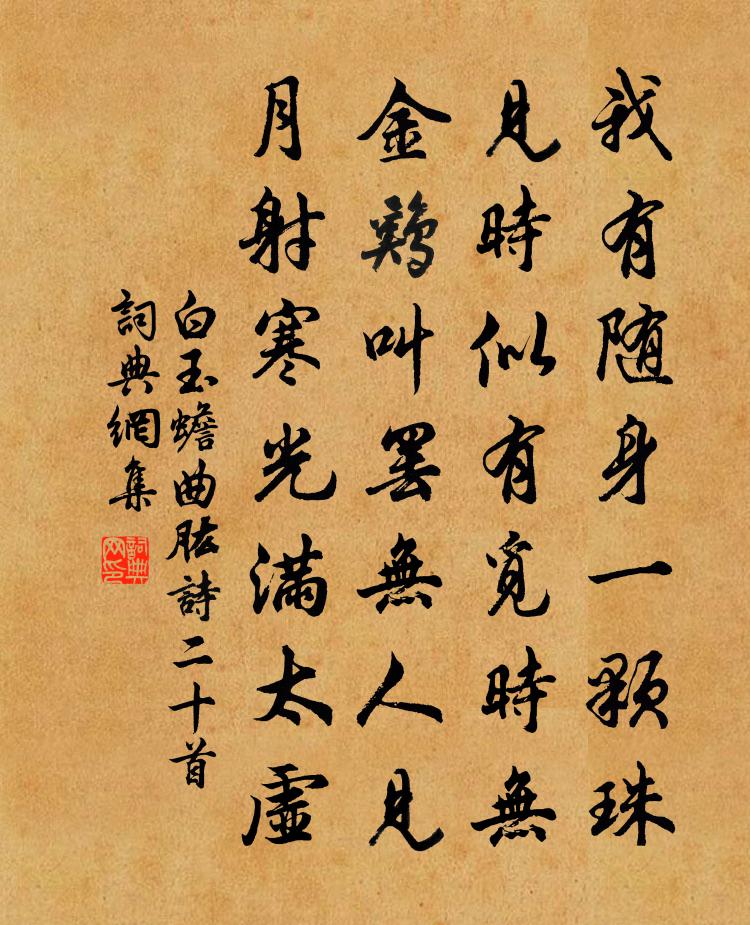 我有随身一顆珠
見時似有覓時無
金鷄叫罷無人見
月射寒光滿太虛
白玉蟾曲肱詩二十首
詞典網集
詞典网印